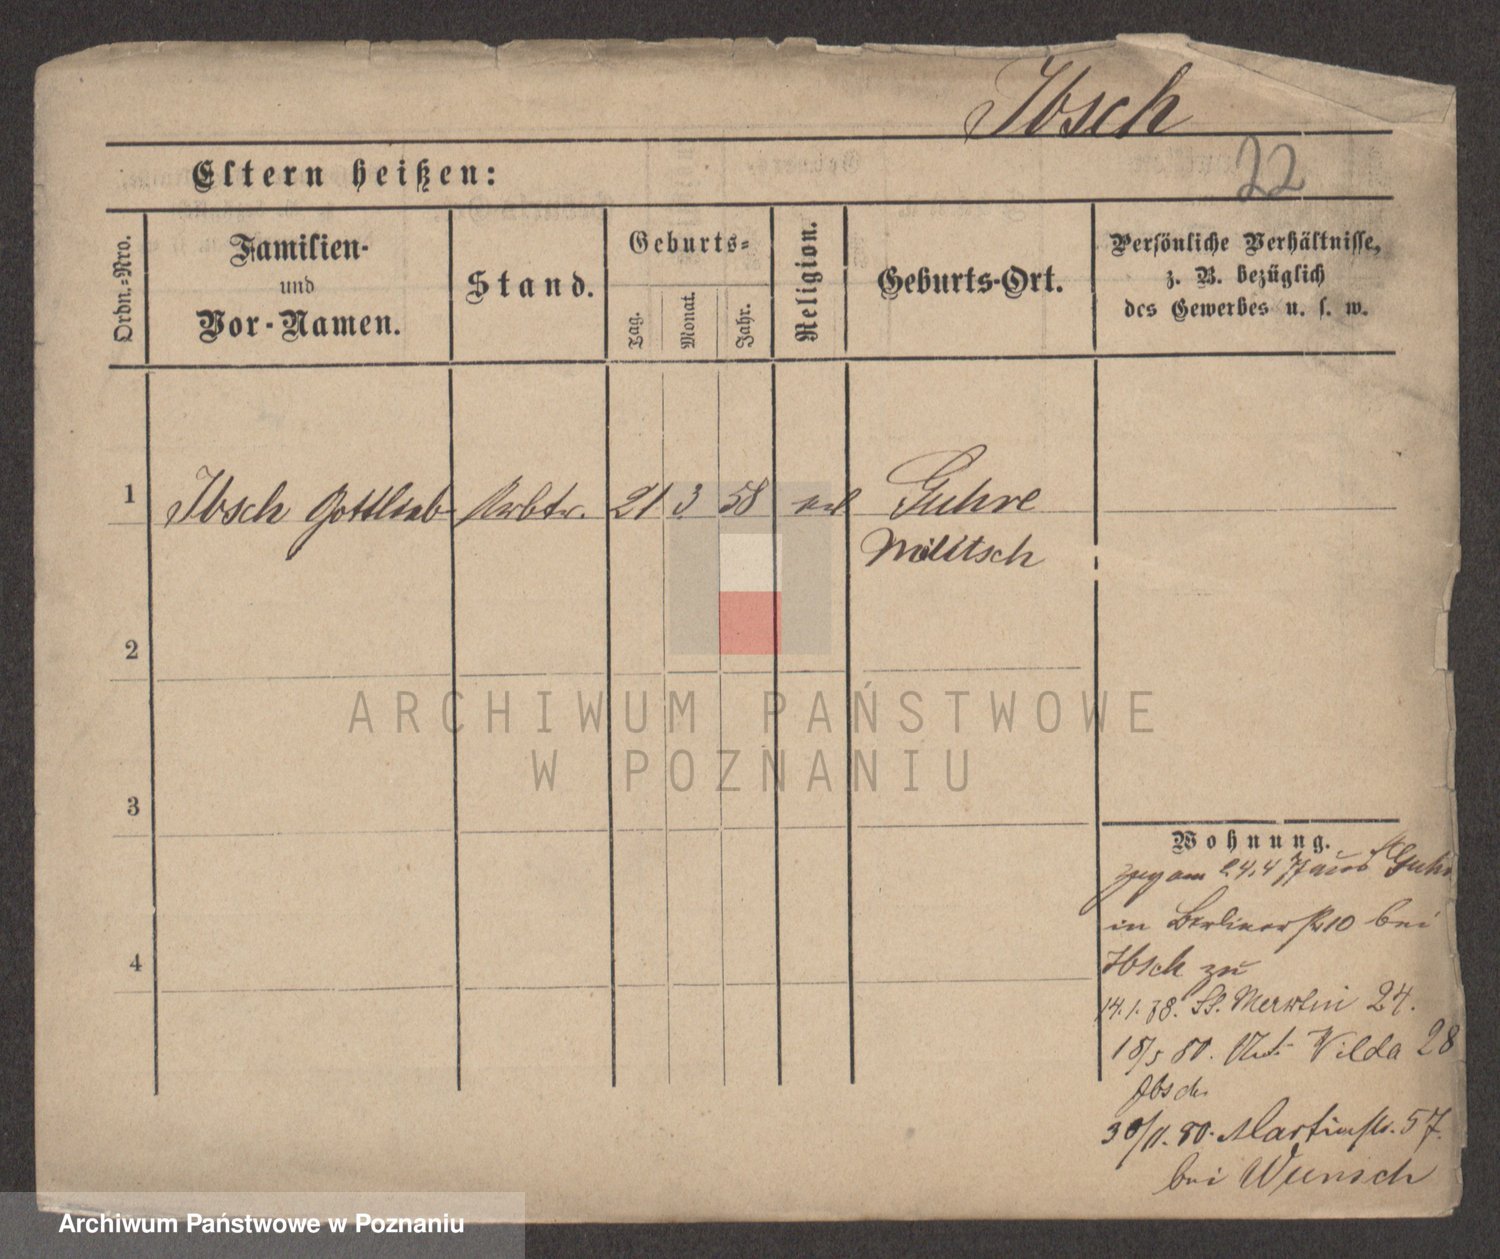 Ibsch
22
Eltern heißen:
Ordn.-Nro.
Familien-
und
Vor-Namen.
Stand.
Geburts-
Tag.
Monat.
Jahr.
Religion.
Geburts-Ort.
Persönliche Verhältnisse,
z. B. bezüglich
des Gewerbes u. s. w.
1
Ibsch Gottlieb
Arbtr.
21
3
58
Guhre
Militsch
2
3
4
ARCHIWUM PAŃSTWOWE
W POZNANIU
Wohnung.
zzg am 24.4 77 aus Guhre
in Berlinerstr 10 bei
Ibsch zu
14.1.78. St. Martin 24.
18/5 80. Unt. Wilda 28
Ibsch
30/11. 80. Martinstr. 57.
bei Wunsch
Archiwum Państwowe w Poznaniu